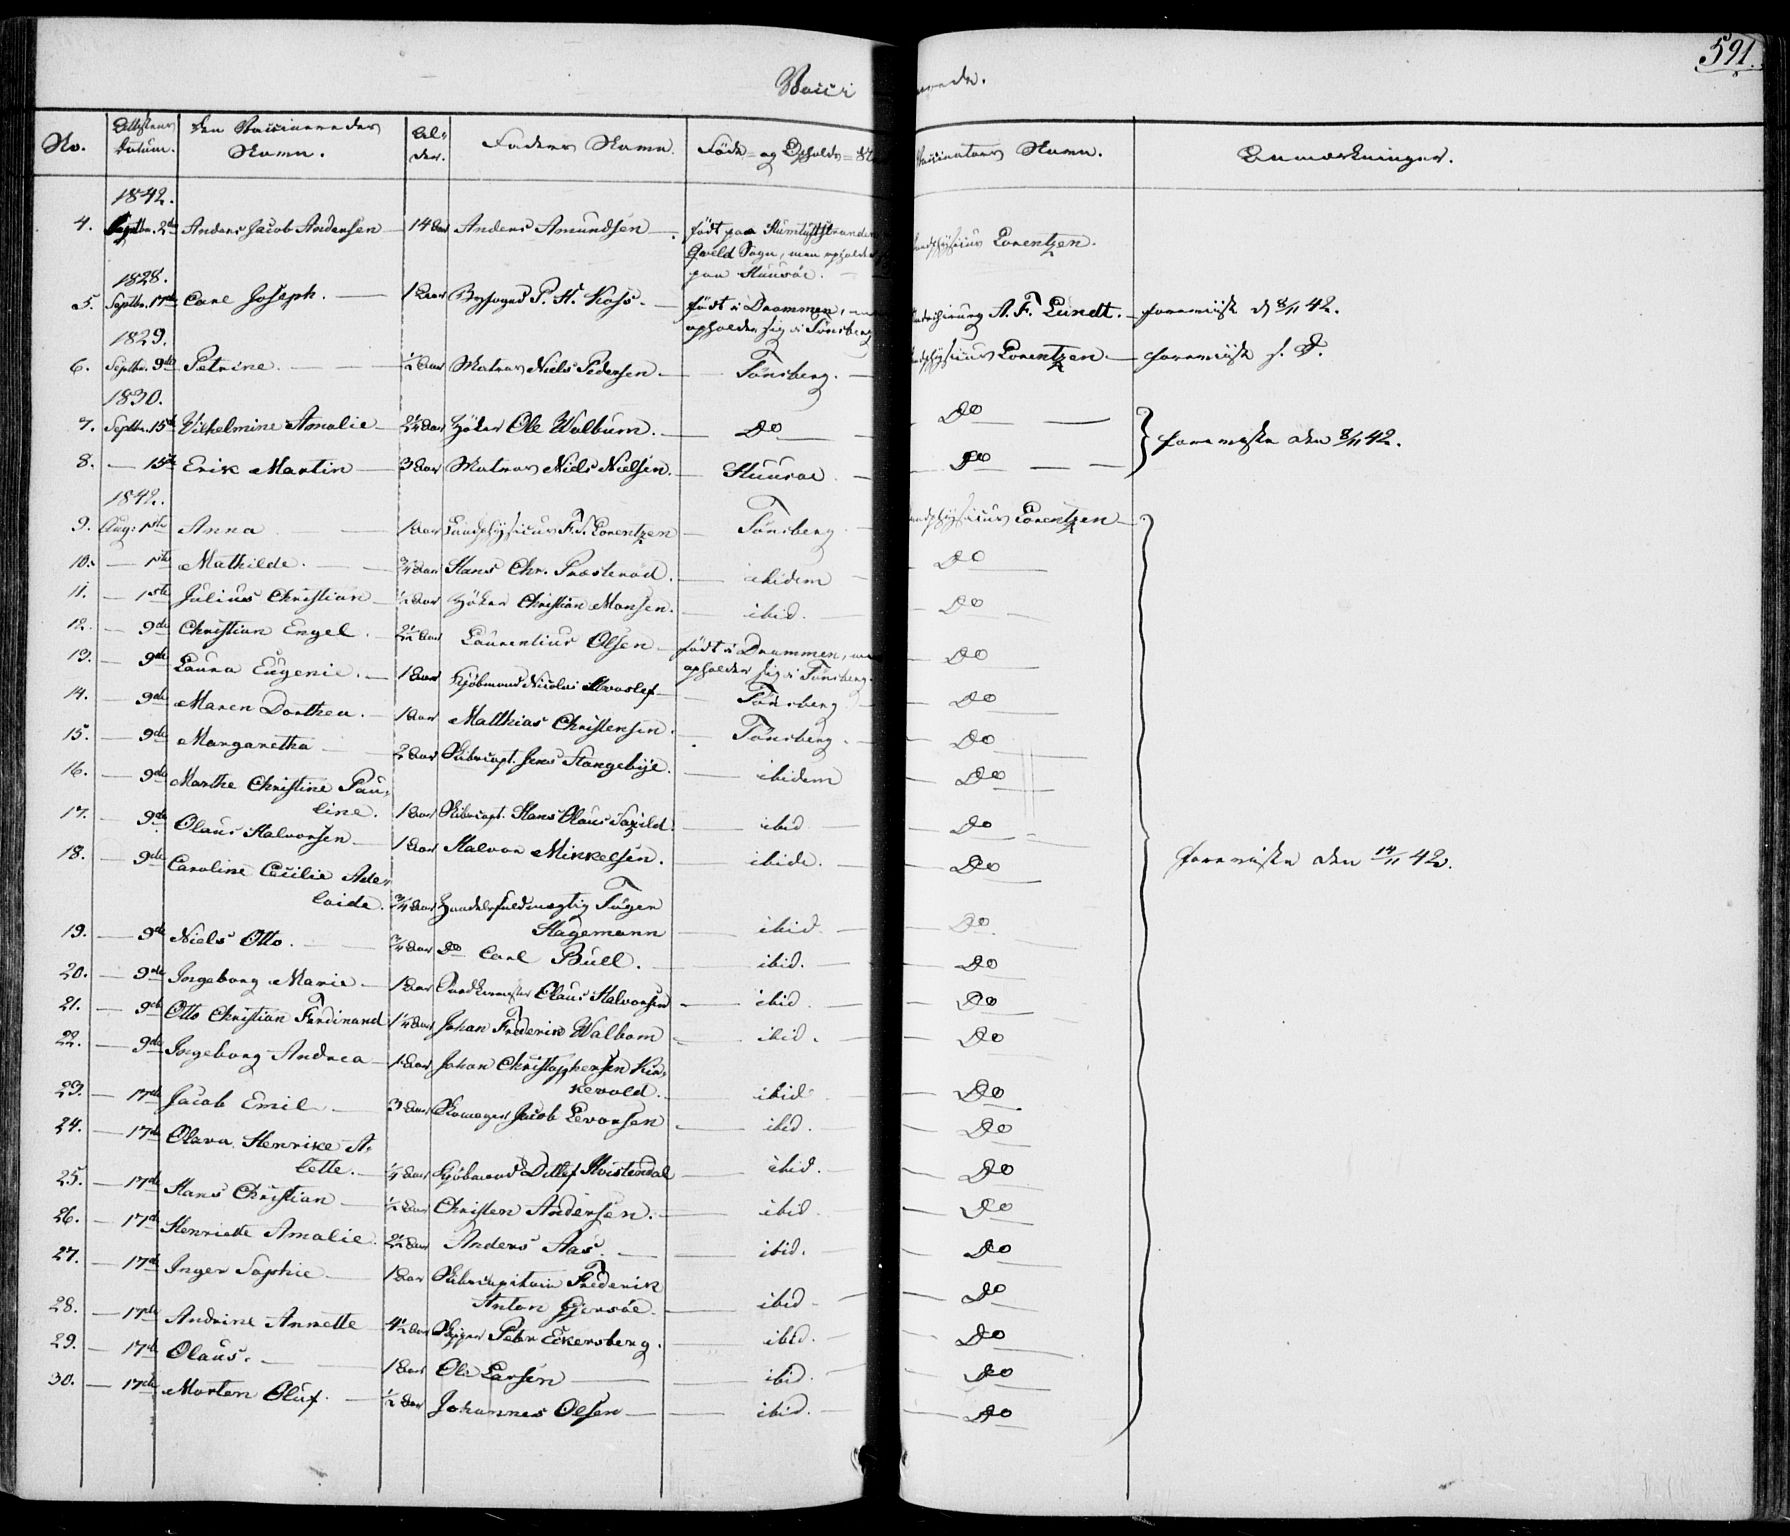 591.
Vacci nerede.
No. Attestens Datum. Den Vaccineredes Navn. Al- der. Faders Navn. Føde- og Opholds-St Vaccinators Navn. Anmærkninger.
1842.
4. Septbr. 2den Anders Jacob Andersen 14 Aar Anders Amundsen født paa
Sogn, men opholder
paa Huusøe. Landphysicus Lorentzen.
1828.
5. Septbr. 17de Carl Joseph. 1 Aar Byfoged P. H. Koss. født i Drammen, men
opholder sig i Tönsberg A. F. Lundt. foreviist d. 8/11 42.
1829.
6. Septbr. 9de Petrine. 1/2 Aar Matros Niels Pedersen. Tönsberg. Landphysicus Lorentzen. foreviist s. D.
1830.
7. Septbr. 15de Vilhelmine Amalie 2 1/4 Aar Höker Ole Walbum. Do Do
8. 15de Erik Martin 3 Aar Matros Niels Nielsen. Huusøe. Do foreviste den 8/11 42.
1842.
9. Aug: 1ste Anna 1 Aar Landphysicus F. F. Lorentzen Tönsberg Landphysicus Lorentzen
10. 1ste Mathilde. 3/4 Aar Hans Chr. Presterød. ibidem Do
11. 1ste Julius Christian 1/2 Aar Höker Christian Monsen. ibid. Do
12. 9de Christian Engel. 2 1/2 Aar Laurentius Olsen født i Drammen, men
opholder sig i Tönsberg. Do
13. 9de Laura Eugenie. 1 Aar Kjøbmand Nicolai Hvoslef Tönsberg Do
14. 9de Maren Dorthea. 1 Aar Matthias Christensen. Tönsberg. Do
15. 9de Margaretha 2 Aar Skibscapt. Jens Stangebye. ibidem Do
16. 9de Marthe Christine Pau-
line. 1 Aar Skibscapt. Hans Olaus Saxild. ibid Do
17. 9de Olaus Halvorsen 1 Aar Halvor Mikkelsen. ibide. Do
18. 9de Caroline Cecilie Ade-
laide. 3/4 Aar Handelsfuldmægtig Töger
Hagemann ibid. Do
19. 9de Niels Otto. 3/4 Aar Do Carl Bull. ibid. Do
20. 9de Ingeborg Marie 1 Aar Olaus Halvorsen ibid. Do
21. 9de Otto Christian Ferdinand 1 1/4 Aar Johan Frederik Walbom ibid. Do
22. 9de Ingeborg Andrea 1 Aar Johan Christophersen Kir-
kevold. ibid. Do
23. 17de Jacob Emil 3 Aar Skomager Jacob Levorsen ibid. Do
24. 17de Olava Henrike A-
lette. 1/4 Aar Kjøbmand Ditlef Hvistendal ibid. Do
25. 17de Hans Christian 1/2 Aar Christen Andersen. ibid. Do
26. 17de Henriette Amalie. 2 1/2 Aar Anders Aas. ibid. Do
27. 17de Inger Sophie 1 Aar Skibscapitain Frederik
Anton Gjersøe. ibid Do
28. 17de Andrine Annette 4 1/2 Aar Skipper Peter Eckersberg. ibid. Do
29. 17de Olaus. 1 Aar Ole Larsen ibid. Do
30. 17de Morten Oluf. 1/2 Aar Johannes Olsen ibid. Do
foreviste den 14/11 42.